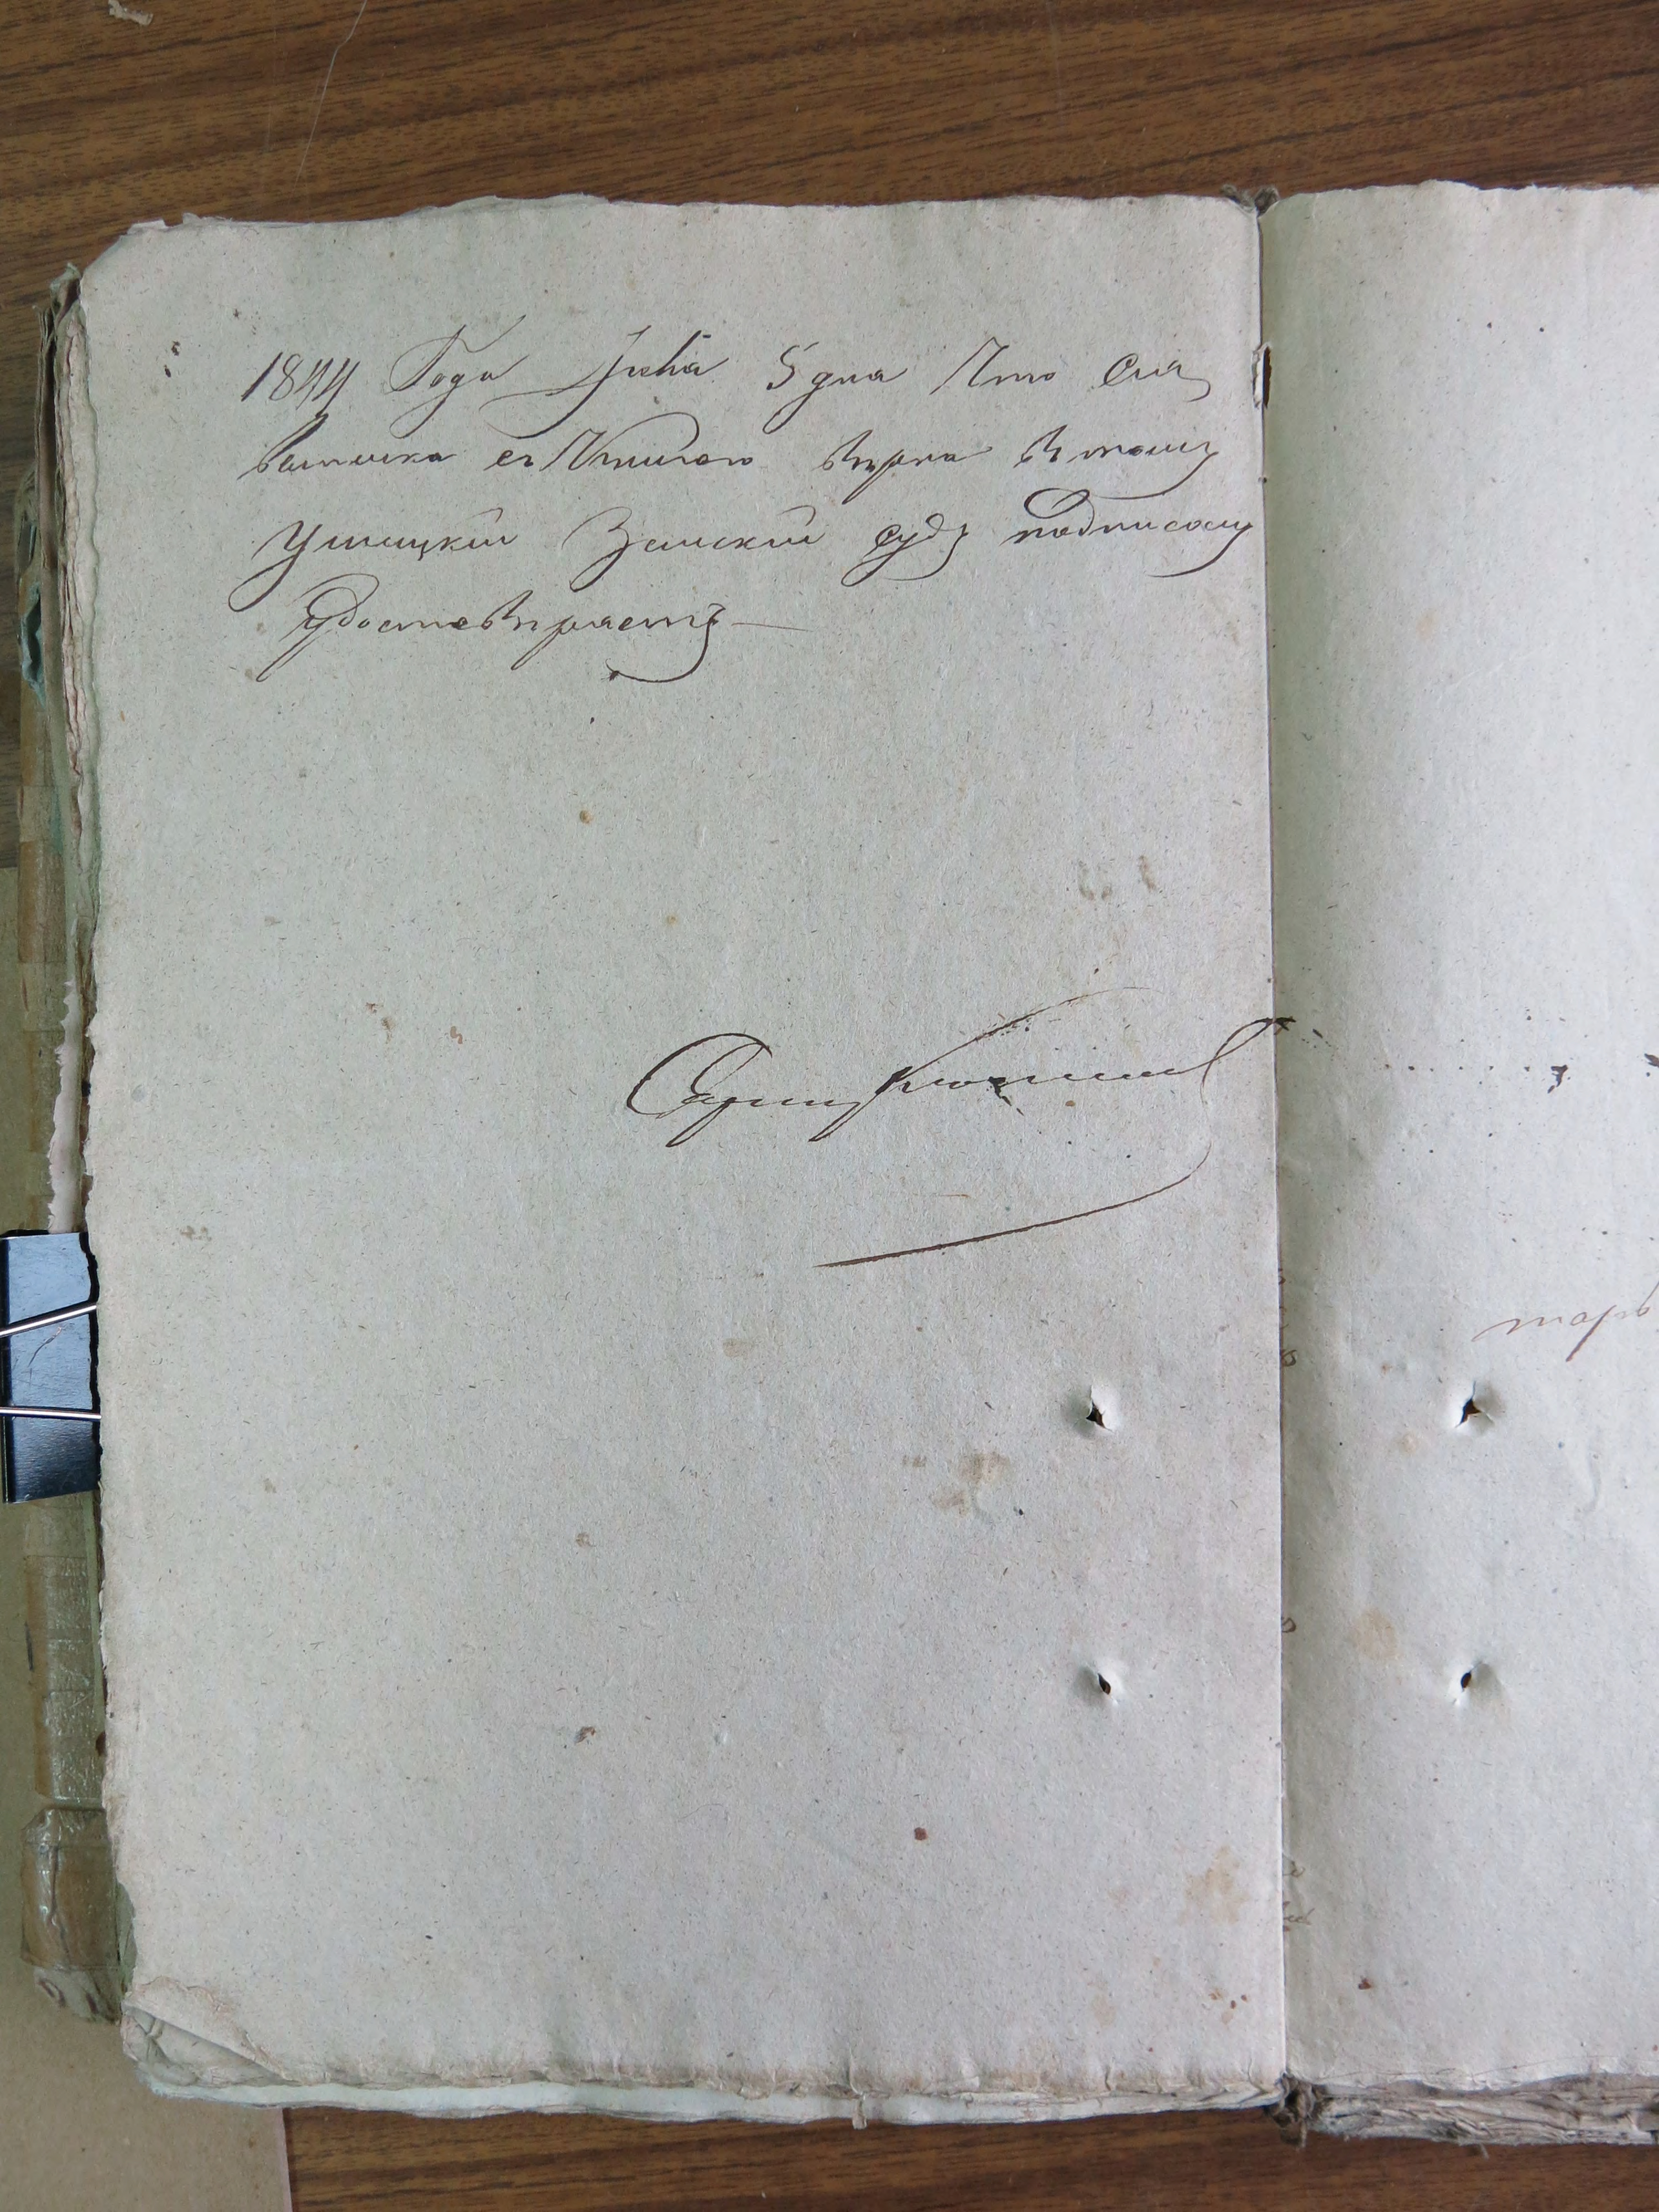 1844 Года Іюня 5 дня Что Сія
выписка съ Книгою вѣрна въ томъ
Ушицкій Земскій судъ подписомъ
удостовѣряетъ